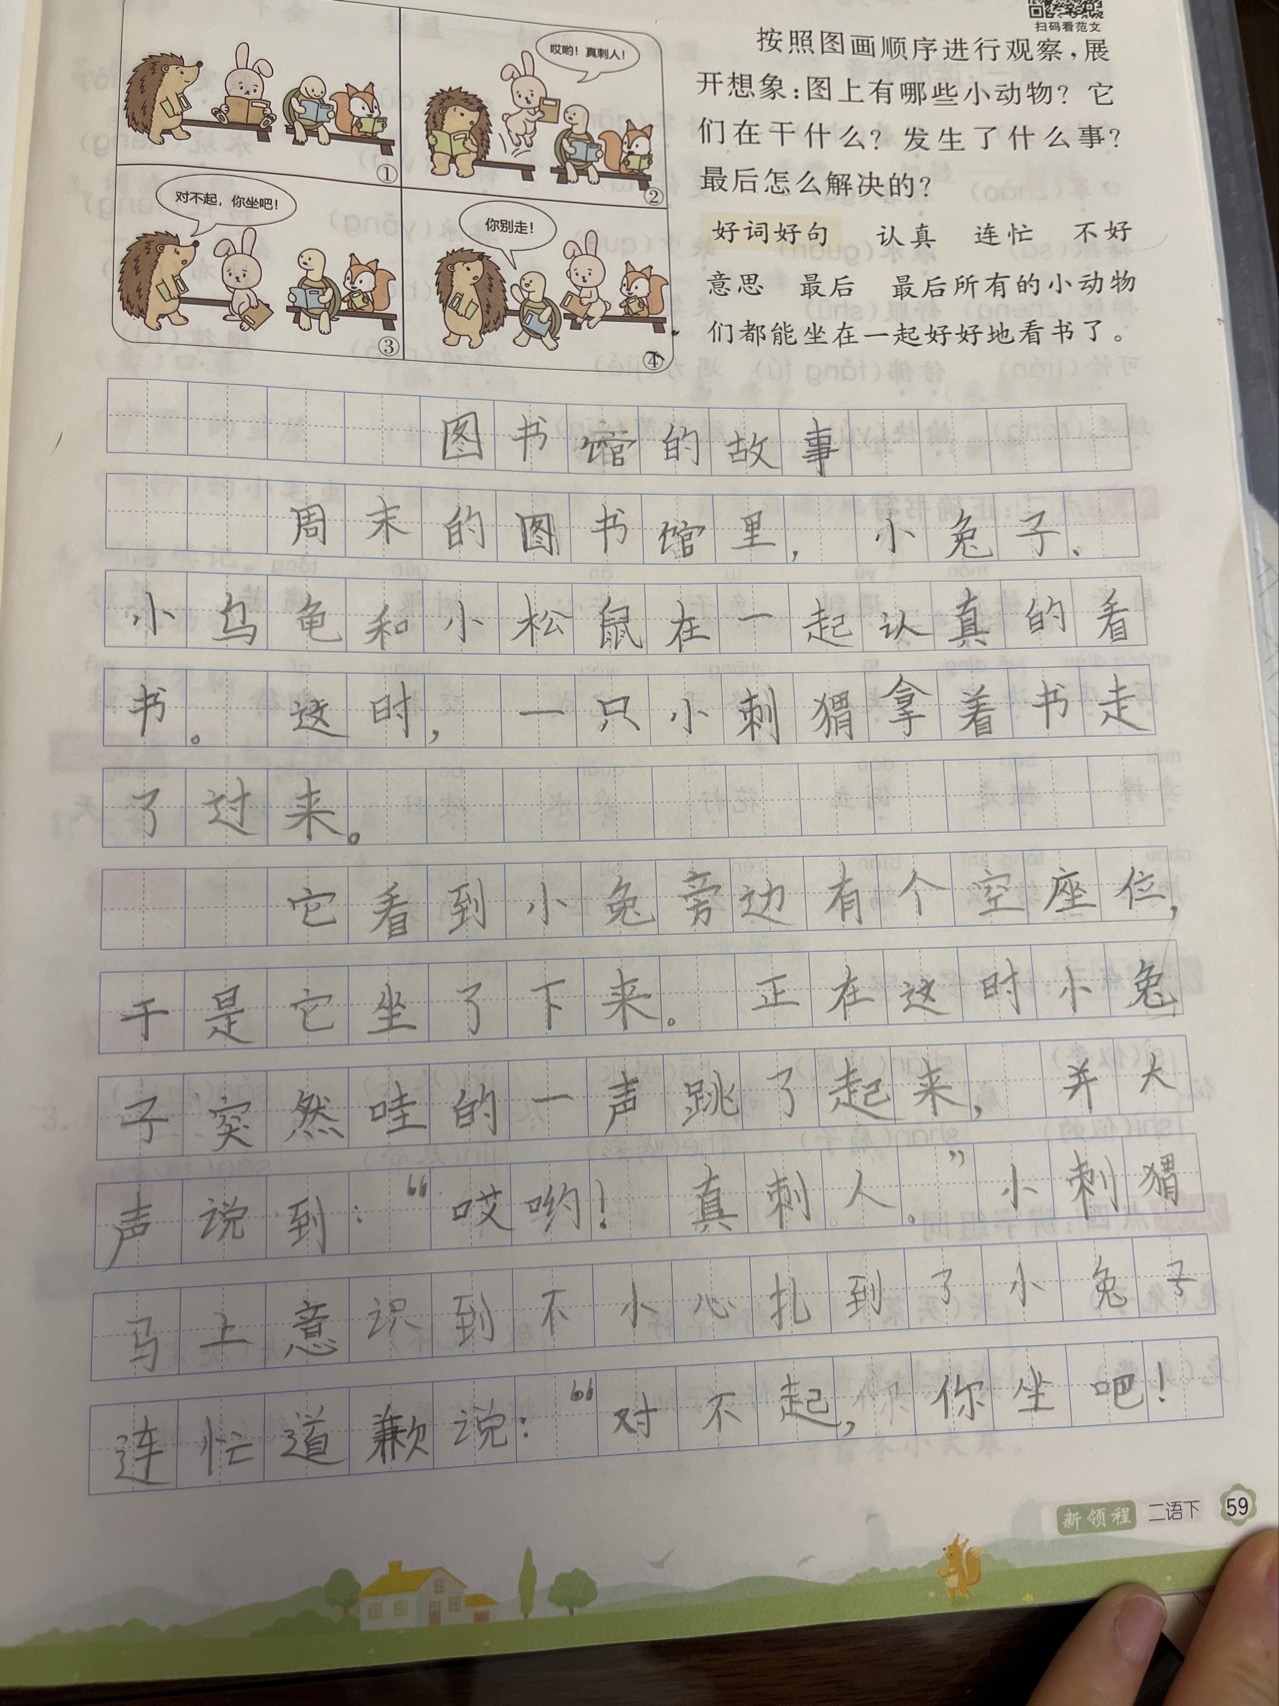 扫码看范文
哎哟！真刺人！
①
②
对不起，你坐吧！
你别走！
③
④
按照图画顺序进行观察，展
开想象：图上有哪些小动物？它
们在干什么？发生了什么事？
最后怎么解决的？
好词好句 认真 连忙 不好
意思 最后 最后所有的小动物
们都能坐在一起好好地看书了。
图书馆的故事
周末的图书馆里，小兔子、
小乌龟和小松鼠在一起认真的看
书。这时，一只小刺猬拿着书走
了过来。
它看到小兔旁边有个空座位，
于是它坐了下来。正在这时小兔
子突然哇的一声跳了起来，并大
声说到：“哎哟！真刺人。”小刺猬
马上意识到不小心扎到了小兔子
连忙道歉说：“对不起，你坐吧！
新领程 二语下 59